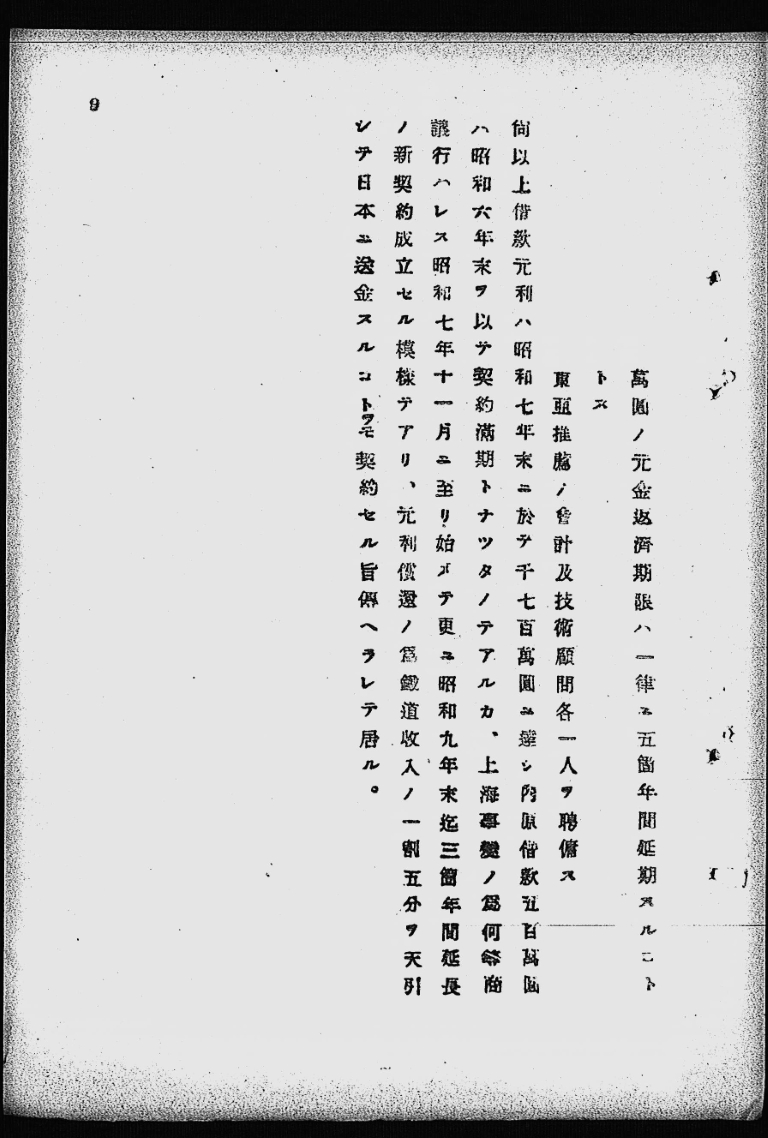 萬圓ノ元金返濟期限ハ一律ニ五箇年間延期スルコト
トス
東亞推薦ノ會計及技術顧問各一人ヲ聘傭ス
尙以上借款元利ハ昭和七年末ニ於テ千七百萬圓ニ達シ內原借款五百萬圓
ハ昭和六年末ヲ以テ契約滿期トナツタノテアルカ、上海事變ノ爲何等商
議行ハレス昭和七年十一月ニ至リ始メテ更ニ昭和九年末迄三箇年間延長
ノ新契約成立セル模樣テアリ、元利償還ノ爲鐵道收入ノ一割五分ヲ天引
シテ日本ニ送金スルコトヲモ契約セル旨傳ヘラレテ居ル。
9